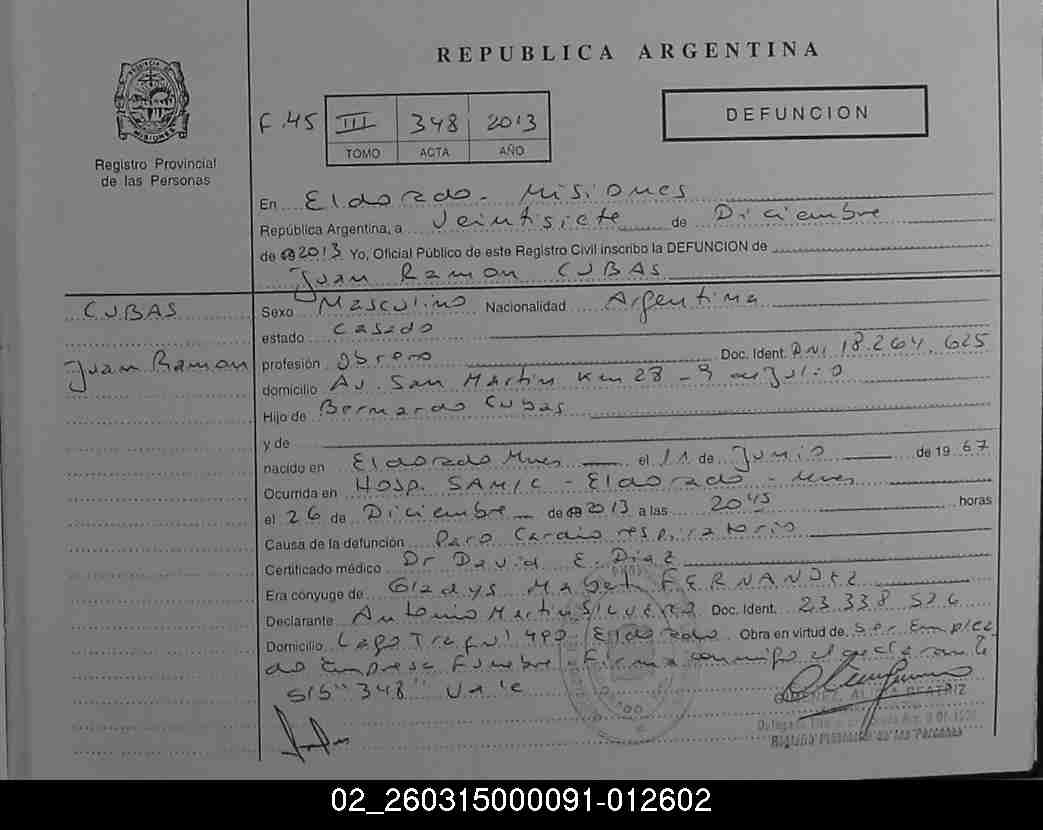 REPUBLICA ARGENTINA
PROVINCIA DE MISIONES
Registro Provincial
de las Personas
F.45 III 348 2013
TOMO ACTA AÑO
DEFUNCION
En Eldorado - Misiones
República Argentina, a Veintisiete de Diciembre
de 2013 Yo, Oficial Público de este Registro Civil inscribo la DEFUNCION de
Juan Ramon CUBAS
CUBAS
Juan Ramon
Sexo Masculino Nacionalidad Argentina
estado Casado
profesión Obrero Doc. Ident. DNI 18.264.625
domicilio Av. San Martin Km 28 - 9 de Julio
Hijo de Bernardo Cubas
y de
nacido en Eldorado Mnes el 11 de Junio de 19 67
Ocurrida en Hosp. SAMIC - Eldorado - Mnes
el 26 de Diciembre de 2013 a las 20 45 horas
Causa de la defunción Paro Cardio respiratorio
Certificado médico Dr David E. Diaz
Era cónyuge de Gladys Mabel FERNANDEZ
Declarante Antonio Martin Doc. Ident. 23 338 526
Domicilio Lago 490 Eldorado Obra en virtud de Ser Emplea
do Empresa Funebre - Firma conmigo el declarante
S/S "348" Vale
BEATRIZ
Registro Provincial de las Personas
02_260315000091-012602